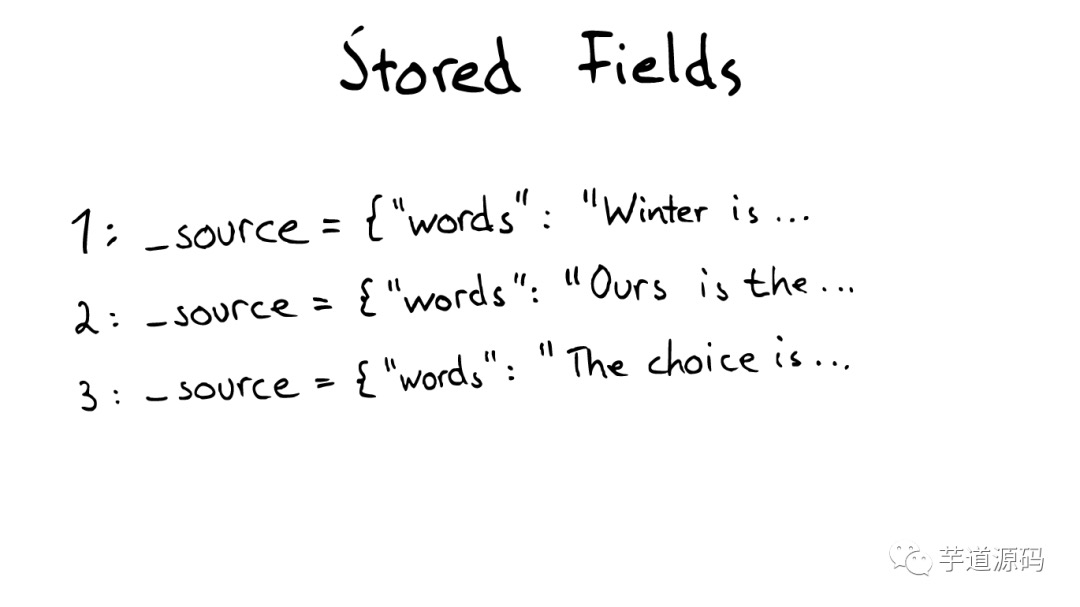 Stored Fields
1: _source = {"words": "Winter is ...
2: _source = {"words": "Ours is the ...
3: _source = {"words": "The choice is ...
芋道源码